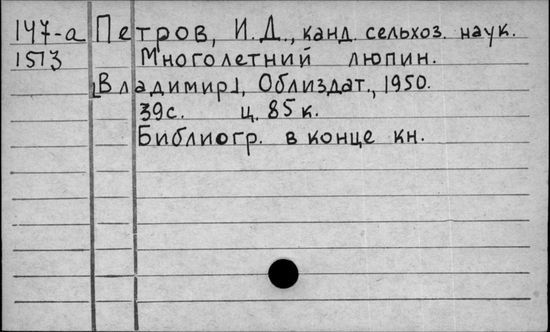 147-а Петров, И.Д., канд. сельхоз. наук.
1573 Многолетний люпин.
[Владимир], Облиздат., 1950.
39с. ц. 85 к.
Библиогр. в конце кн.